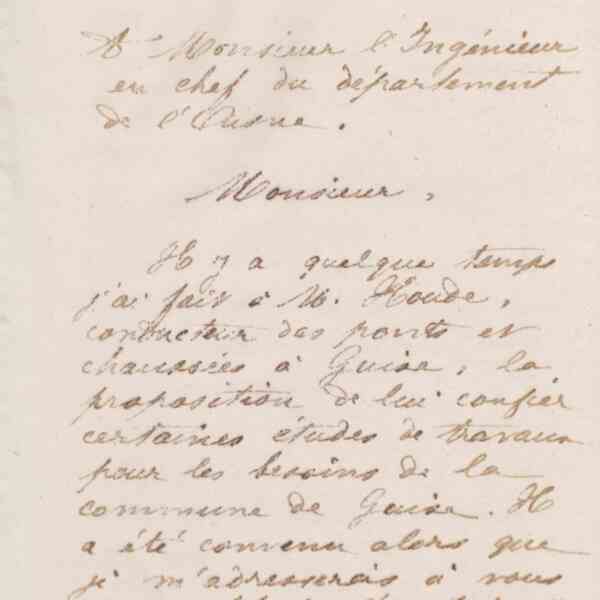 A Monsieur l'Ingénieur
en chef du département
de l'Aisne.
Monsieur,
Il y a quelque temps
j'ai fait à M. Houde,
conducteur des ponts et
chaussées à Guise, la
proposition de lui confier
certaines études de travaux
pour les besoins de la
commune de Guise. Il
a été convenu alors que
je m'adresserais à vous